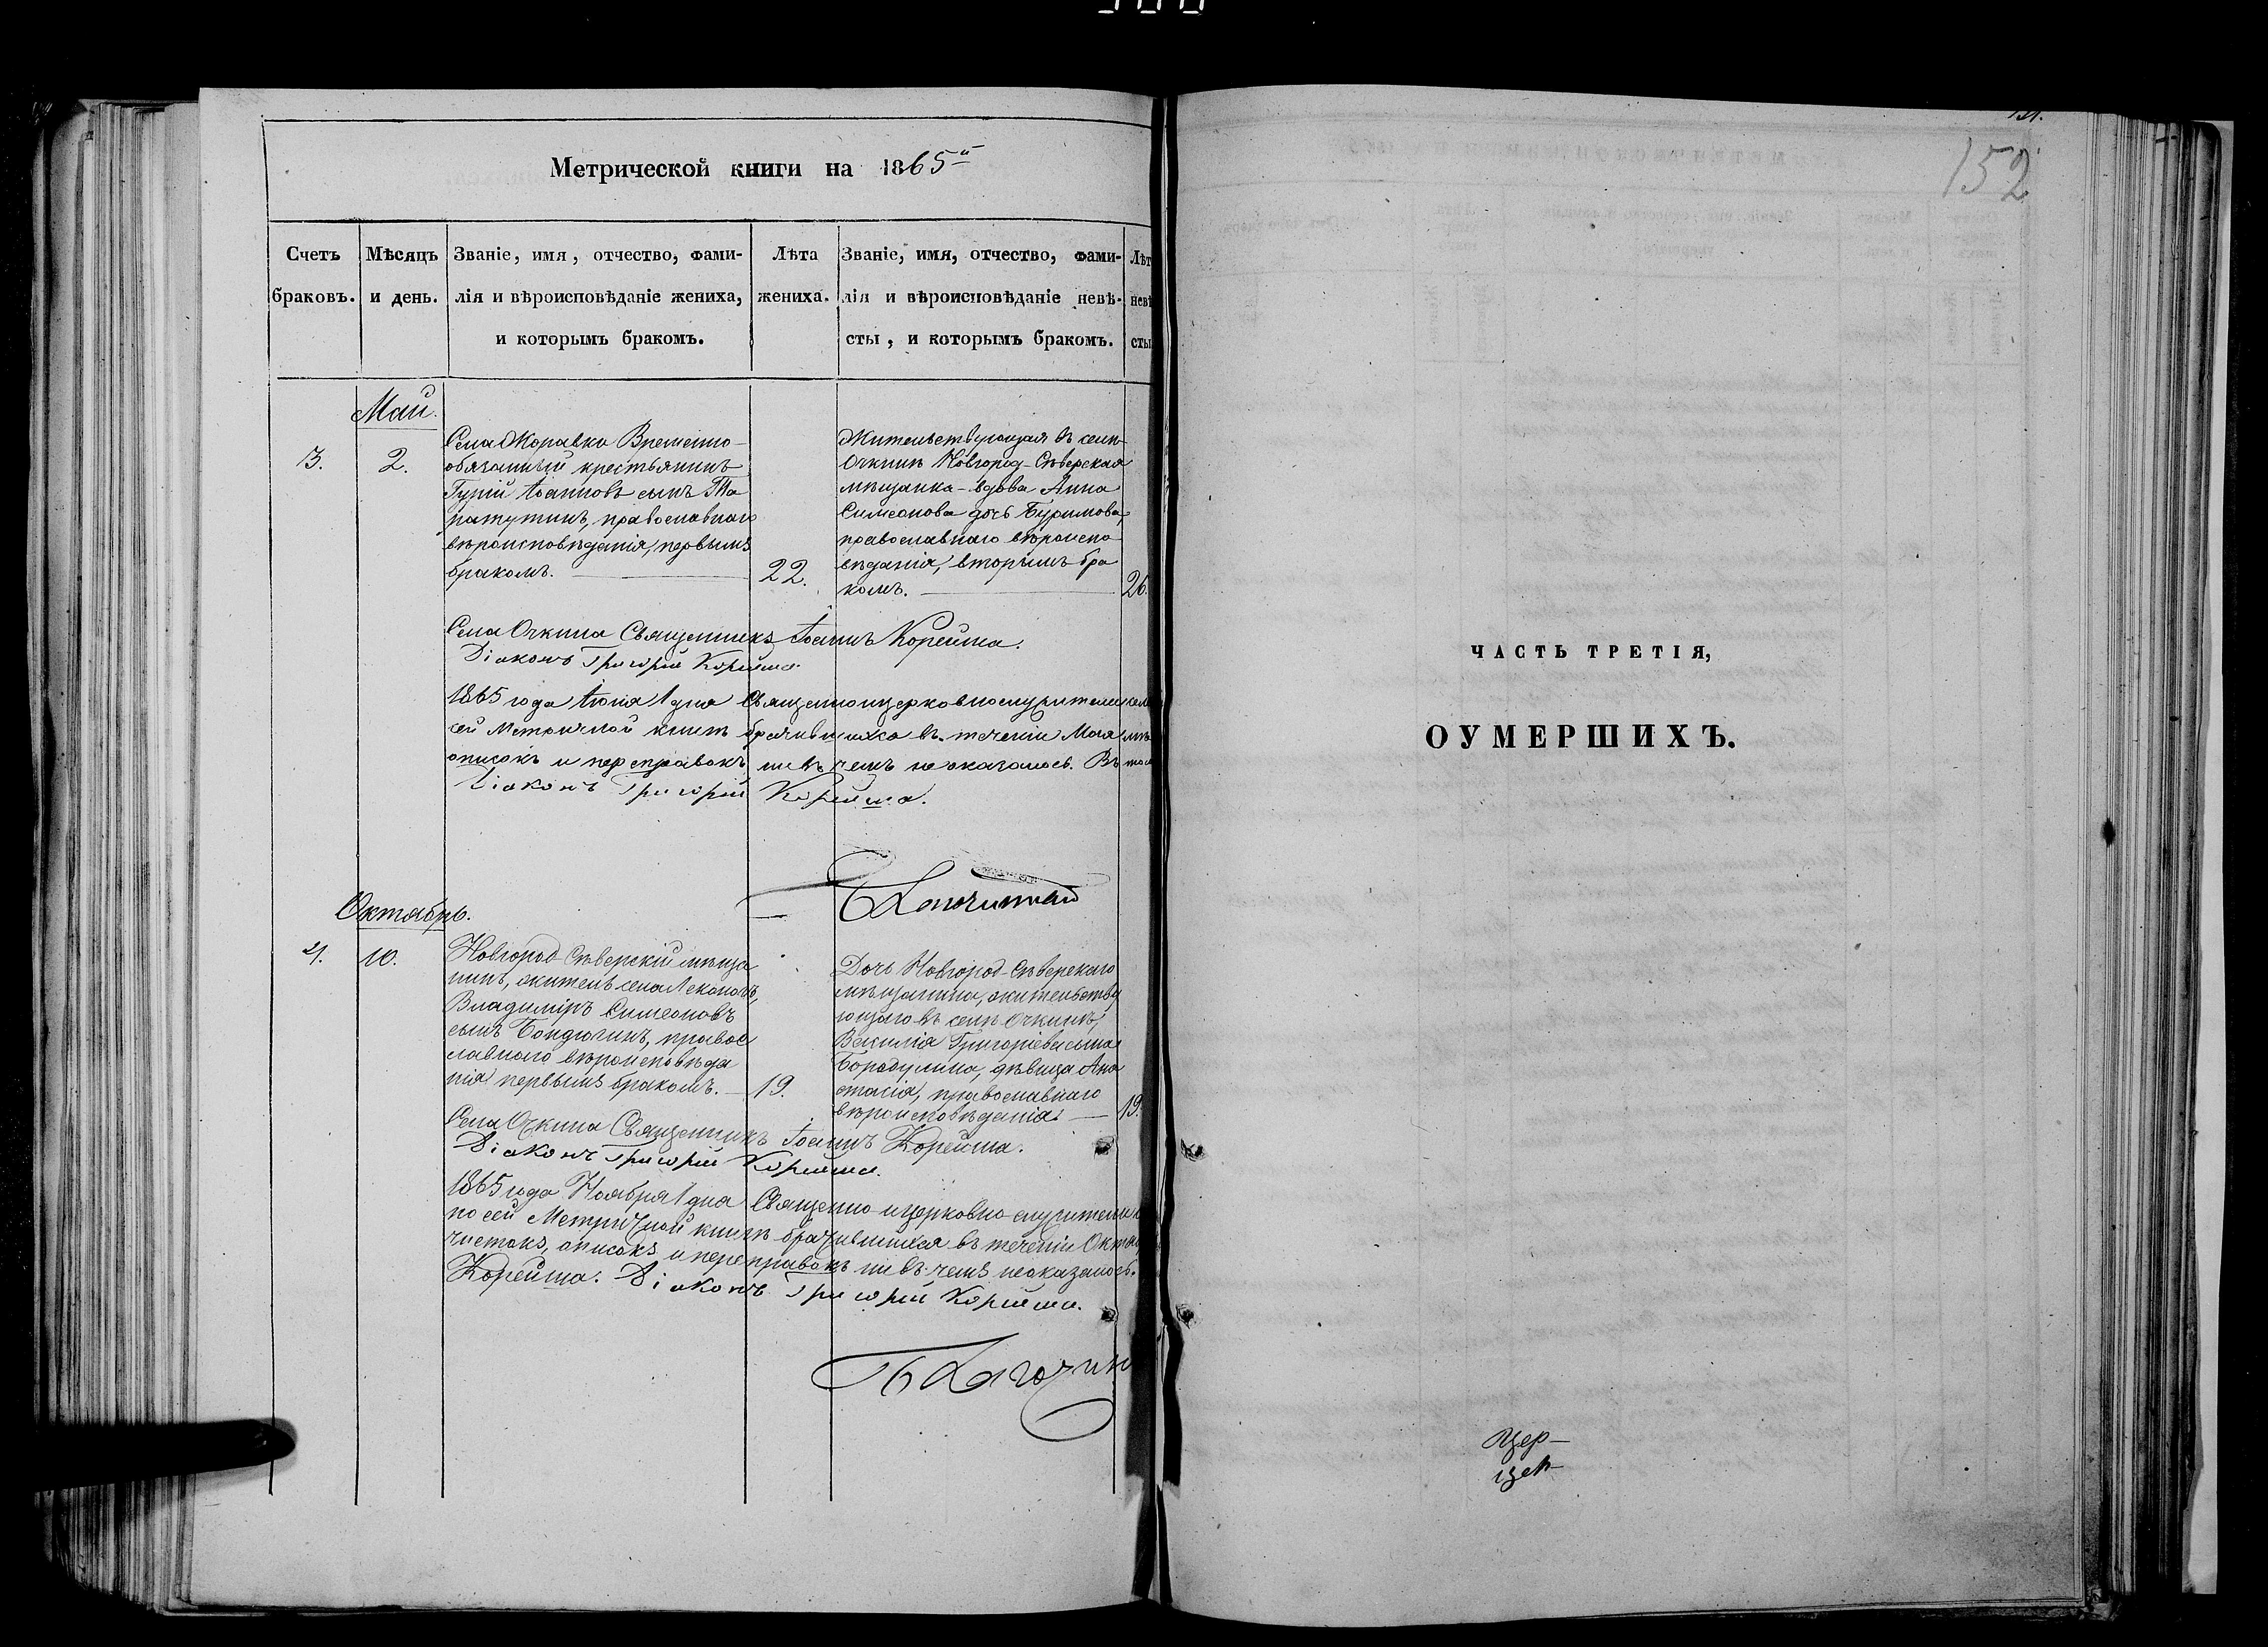 Метрической книги на 1865й
Счетъ браковъ.
Мѣсяцъ и день.
Званіе, имя, отчество, фами-
лія и вѣроисповѣданіе жениха,
и которымъ бракомъ.
Лѣта
жениха.
Званіе, имя, отчество, фами-
лія и вѣроисповѣданіе невѣ-
сты, и которымъ бракомъ.
Лѣт
невѣ
сты
Май.
3.
2.
Села Журавки Временно-
обязанный крестьянинъ
Гурій Іоанновъ сынъ Та
ратутинъ, православнаго
вѣроисповѣданія, первымъ
бракомъ.
22.
Жительствующая въ селѣ
Очкинѣ Новгород-Сѣверская
мѣщанка-вдова Анна
Симеонова дочь Буримова,
православнаго вѣроиспо
вѣданія, вторымъ бра
комъ.
26.
Села Очкина Священникъ Іоаннъ Корейша.
Діаконъ Григорій Корейша.
1865 года Іюня 1 дня Священноцерковнослужители сели
сей Метричной книгѣ брачившихся въ теченіи Мая мѣ
описокъ и переправокъ ни въ чемъ не оказалось. Въ том
Діаконъ Григорій Корейша.
Октябрь.
4.
10.
Новгород-Сѣверскій мѣща
нинъ, житель села
Владиміръ Симеоновъ
сынъ Бондюгинъ, правос
лавного вѣроисповѣда
нія первымъ бракомъ.
19.
Дочь Новгород-Сѣверскаго
мѣщанина, жительству
ющаго въ селѣ Очкинѣ,
Василія Григоріева сына
Бородулина, дѣвица Ана
стасія, православнаго
вѣроисповѣданія.
19.
Села Очкина Священникъ Іоаннъ Корейша.
Діаконъ Григорій Корейша.
1865 года Ноября 1 дня Священно и церковно служители
по сей Метричной книгѣ брачившихся въ теченіи Октя
чистокъ, описокъ и переправокъ ни въ чемъ неоказалось.
Корейша. Діаконъ Григорій Корейша.
Благочин
152
ЧАСТЬ ТРЕТІЯ,
О УМЕРШИХЪ.
Цер-